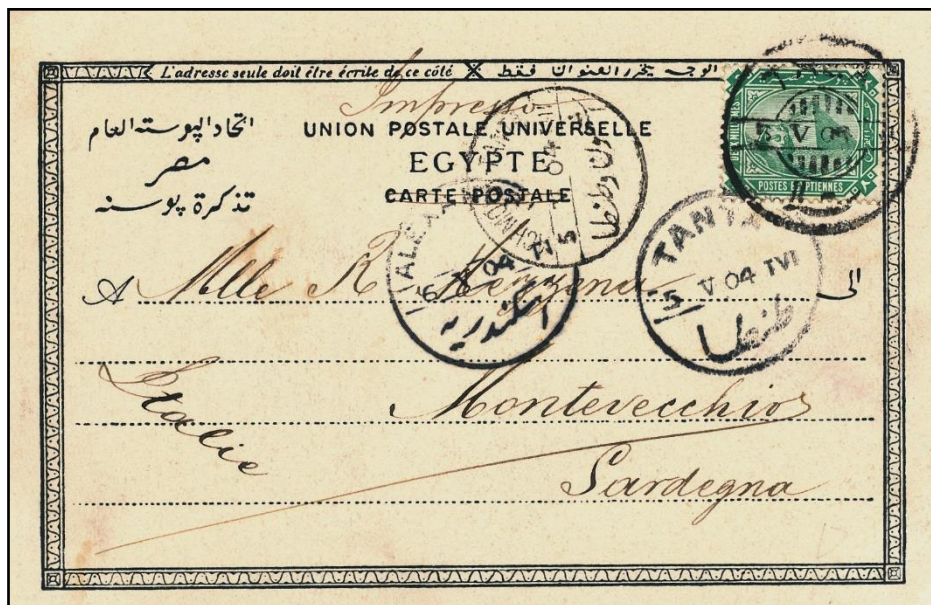 L'adresse seule doit être écrite de ce côté الوجه يحرر العنوان فقط
Impresso
اتحاد البوسته العام
مصر
تذكرة بوسته
UNION POSTALE UNIVERSELLE
EGYPTE
CARTE POSTALE
POSTES EGYPTIENNES
TANTA
5 V 04 TVI
طنطا
ALEXAN
6 V 04
اسكندريه
A Mlle R الى
Montevecchio
Italie
Sardegna